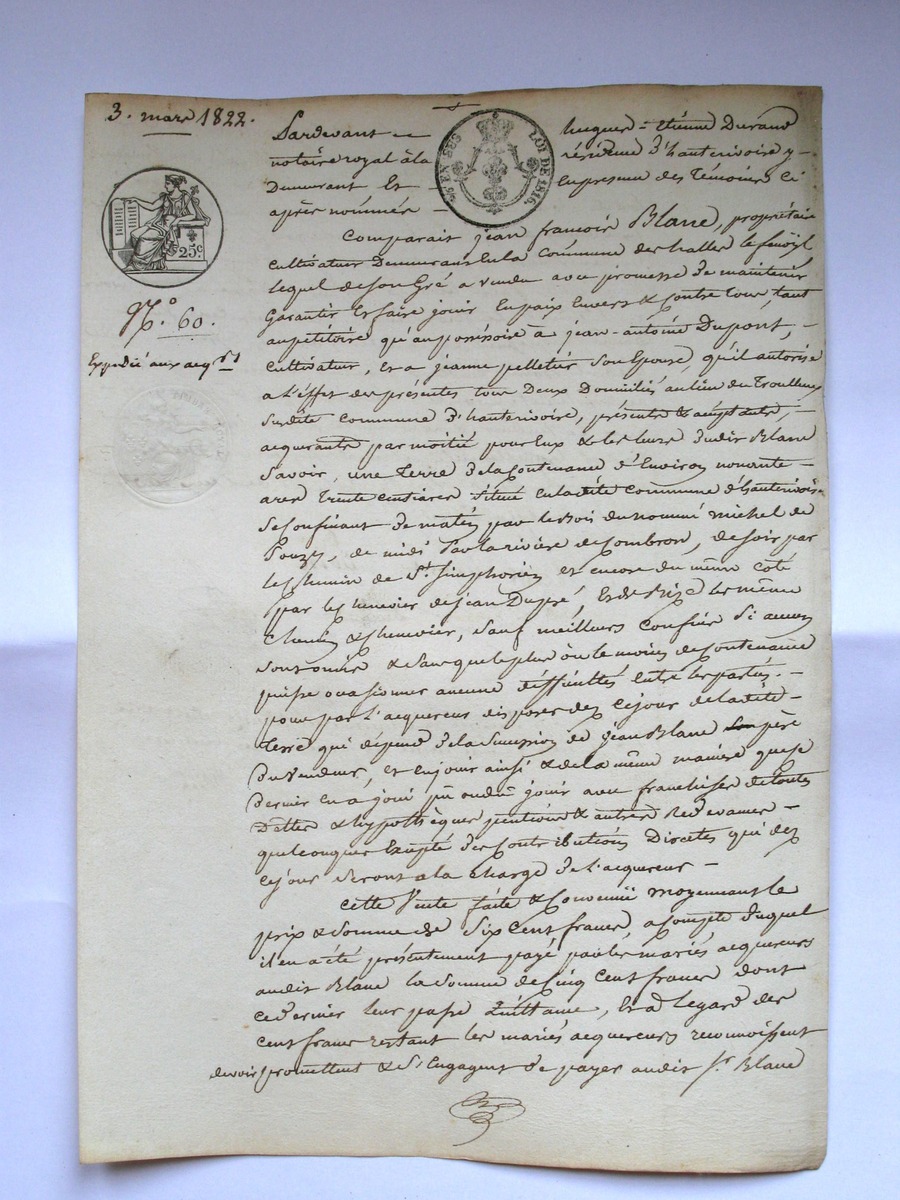 3. mars 1822.
Pardevant hugues-étienne Durand
notaire royal à la résidence d'hauterivoire y
Demeurant Et En présence des Témoins Ci
après nommés
EN SUS LOI DE 1816.
25c
N.o 60.
Expédié aux acqrs
Comparait jean françois Blanc, propriétaire
cultivateur Demeurant En la Commune des halles le fenoyl
lequel de Son Gré a vendu avec promesse de maintenir
Garantir Et faire jouir En paix Envers & Contre tous, tant
au pétitoire qu'au possessoire à jean-antoine Dupont,
Cultivateur, Et a jeanne pelletier Son Epouse, qu'il autorise
a l'Effet des présentes tous Deux Domiciliés au lieu du Trouilleux
Susdite Commune d'hauterivoire, présents & acceptants,
acquerants par moitié pour Eux & les leurs dudit Blanc
Savoir, une Terre de la Contenance d'Environ nonante
ares Trente centiares Située En la dite Commune d'hauterivoire
Se Confinant de matin par les bois du nommé michel de
Pouzy, de midi Par la rivière de Combron, de Soir par
le Chemin de St Simphorien et encore du même côté
par le Chenevier de jean Dupré, Et de Bize le même
Chemin & Chenevier, Sauf meilleurs Confins Si aucun
Sont omis & Sans que le plus ou le moins de Contenance
puisse occasionner aucune difficultés Entre les parties.
pour par l'acquereur disposer dez Ce jour de la dite
Terre qui dépend de la Succession de jean Blanc père
du Vendeur, et En jouir ainsi & de la même manière que Ce
Dernier En a joui pu ou dû jouir avec franchise de toutes
Dettes & hypothèques pentions & autres Redevances
quelconques Excepté des Contributions Directes qui dez
Ce jour Seront a la charge de l'acquereur
Cette Vente faite & Convenüe moyennant le
prix & Somme de Six Cent francs, a Compte duquel
il En a été présentement payé par les mariés acquereurs
audit Blanc la Somme de Cinq Cent francs dont
Ce dernier leur passe Quittance, Et à l'egard des
Cent francs restant les mariés acquereurs reconnoissent
devoir promettent & S'Engagent de payer audit Sr. Blanc